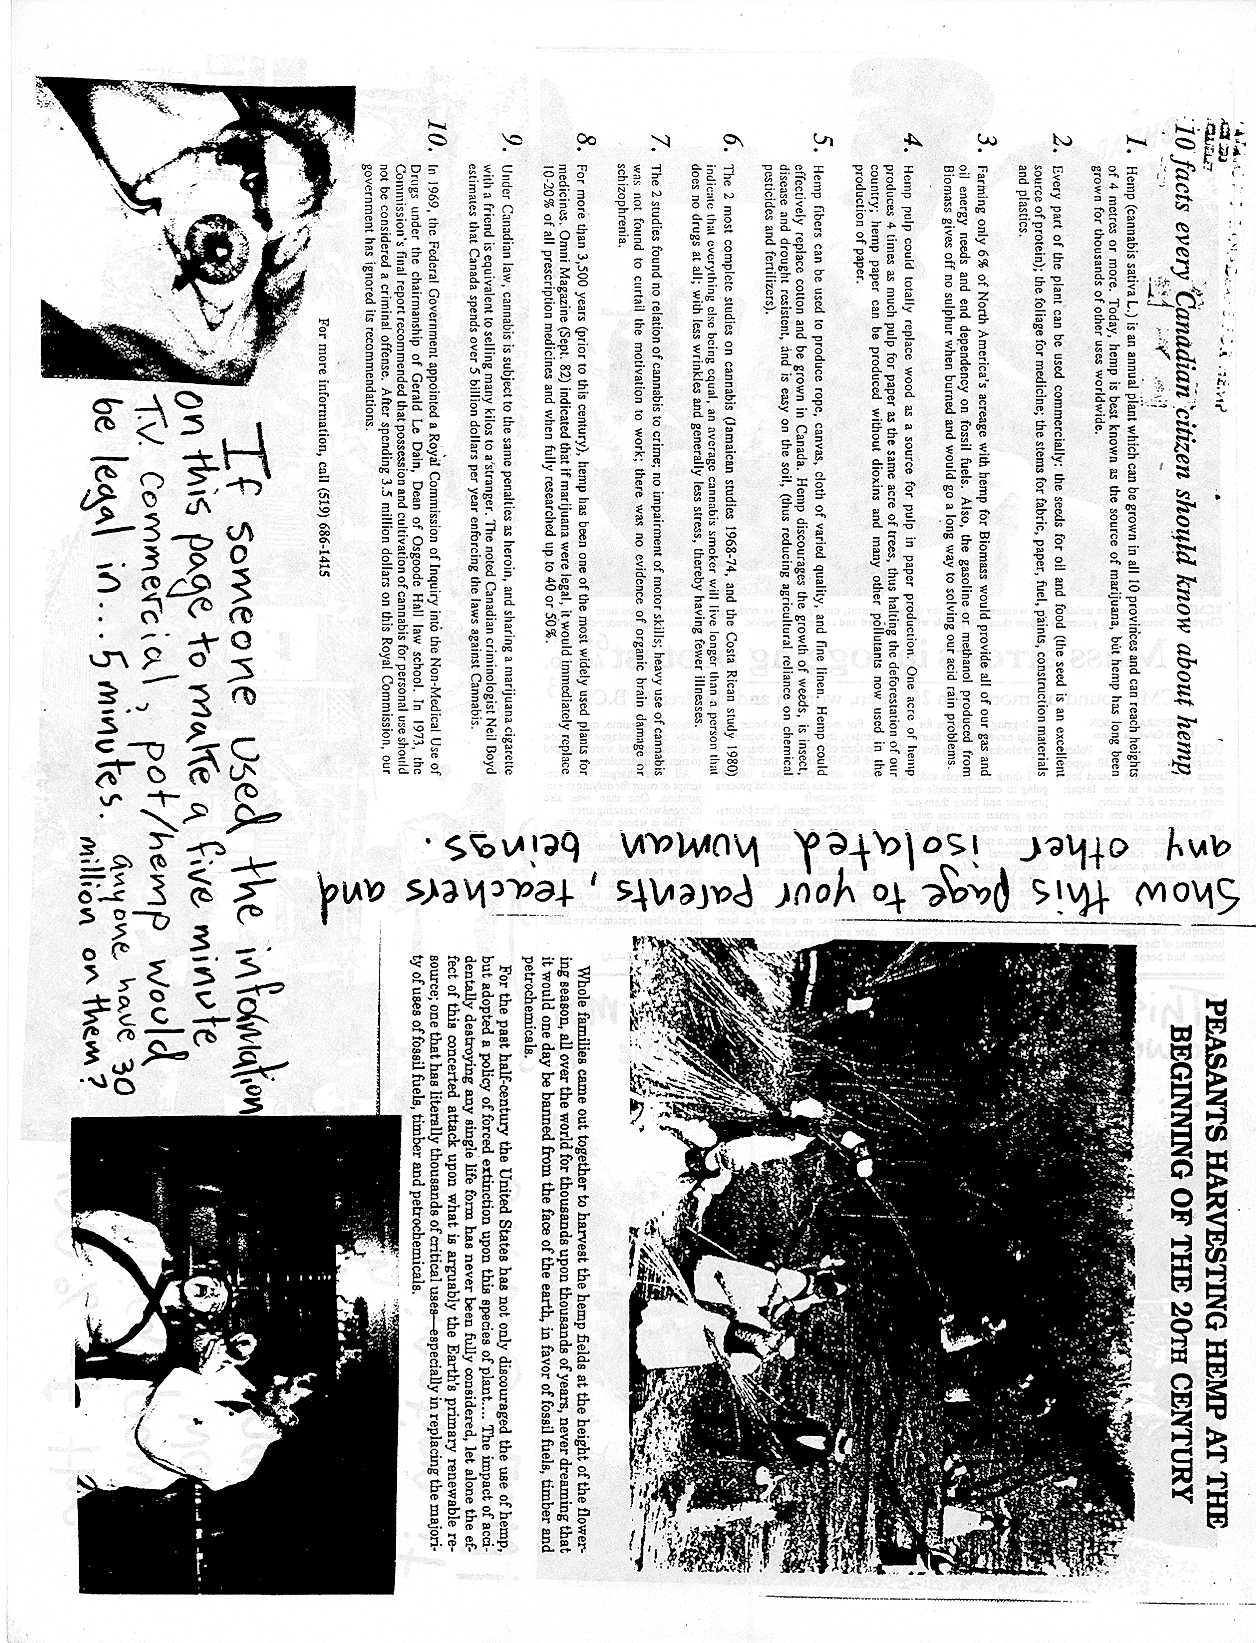 10 facts every Canadian citizen should know about hemp,
1. Hemp (cannabis sativa L.) is an annual plant which can be grown in all 10 provinces and can reach heights
of 4 metres or more. Today, hemp is best known as the source of marijuana, but hemp has long been
grown for thousands of other uses worldwide.
2. Every part of the plant can be used commercially: the seeds for oil and food (the seed is an excellent
source of protein); the foliage for medicine; the stems for fabric, paper, fuel, paints, construction materials
and plastics.
3. Farming only 6% of North America's acreage with hemp for Biomass would provide all of our gas and
oil energy needs and end dependency on fossil fuels. Also, the gasoline or methanol produced from
Biomass gives off no sulphur when burned and would go a long way to solving our acid rain problems.
4. Hemp pulp could totally replace wood as a source for pulp in paper production. One acre of hemp
produces 4 times as much pulp for paper as the same acre of trees, thus halting the deforestation of our
country; hemp paper can be produced without dioxins and many other pollutants now used in the
production of paper.
5. Hemp fibers can be used to produce rope, canvas, cloth of varied quality, and fine linen. Hemp could
effectively replace cotton and be grown in Canada. Hemp discourages the growth of weeds, is insect,
disease and drought resistent, and is easy on the soil, (thus reducing agricultural reliance on chemical
pesticides and fertilizers).
6. The 2 most complete studies on cannabis (Jamaican studies 1968-74, and the Costa Rican study 1980)
indicate that everything else being equal, an average cannabis smoker will live longer than a person that
does no drugs at all; with less wrinkles and generally less stress, thereby having fewer illnesses.
7. The 2 studies found no relation of cannabis to crime; no impairment of motor skills; heavy use of cannabis
was not found to curtail the motivation to work; there was no evidence of organic brain damage or
schizophrenia.
8. For more than 3,500 years (prior to this century), hemp has been one of the most widely used plants for
medicines. Omni Magazine (Sept. 82) indicated that if marijuana were legal, it would immediately replace
10-20% of all prescription medicines and when fully researched up to 40 or 50%.
9. Under Canadian law, cannabis is subject to the same penalties as heroin, and sharing a marijuana cigarette
with a friend is equivalent to selling many kilos to a stranger. The noted Canadian criminologist Neil Boyd
estimates that Canada spends over 5 billion dollars per year enforcing the laws against Cannabis.
10. In 1969, the Federal Government appointed a Royal Commission of Inquiry into the Non-Medical Use of
Drugs under the chairmanship of Gerald Le Dain, Dean of Osgoode Hall law school. In 1973, the
Commission's final report recommended that possession and cultivation of cannabis for personal use should
not be considered a criminal offense. After spending 3.5 million dollars on this Royal Commission, our
government has ignored its recommendations.
For more information, call (519) 686-1415
If someone used the information
on this page to make a five minute
T.V. commercial, pot/hemp would
be legal in... 5 minutes.
anyone have 30
million on them?
Show this page to your parents, teachers and
any other isolated human beings.
PEASANTS HARVESTING HEMP AT THE
BEGINNING OF THE 20TH CENTURY
Whole families came out together to harvest the hemp fields at the height of the flower-
ing season, all over the world for thousands upon thousands of years, never dreaming that
it would one day be banned from the face of the earth, in favor of fossil fuels, timber and
petrochemicals.
For the past half-century the United States has not only discouraged the use of hemp,
but adopted a policy of forced extinction upon this species of plant.... The impact of acci-
dentally destroying any single life form has never been fully considered, let alone the ef-
fect of this concerted attack upon what is arguably the Earth's primary renewable re-
source; one that has literally thousands of critical uses—especially in replacing the majori-
ty of uses of fossil fuels, timber and petrochemicals.